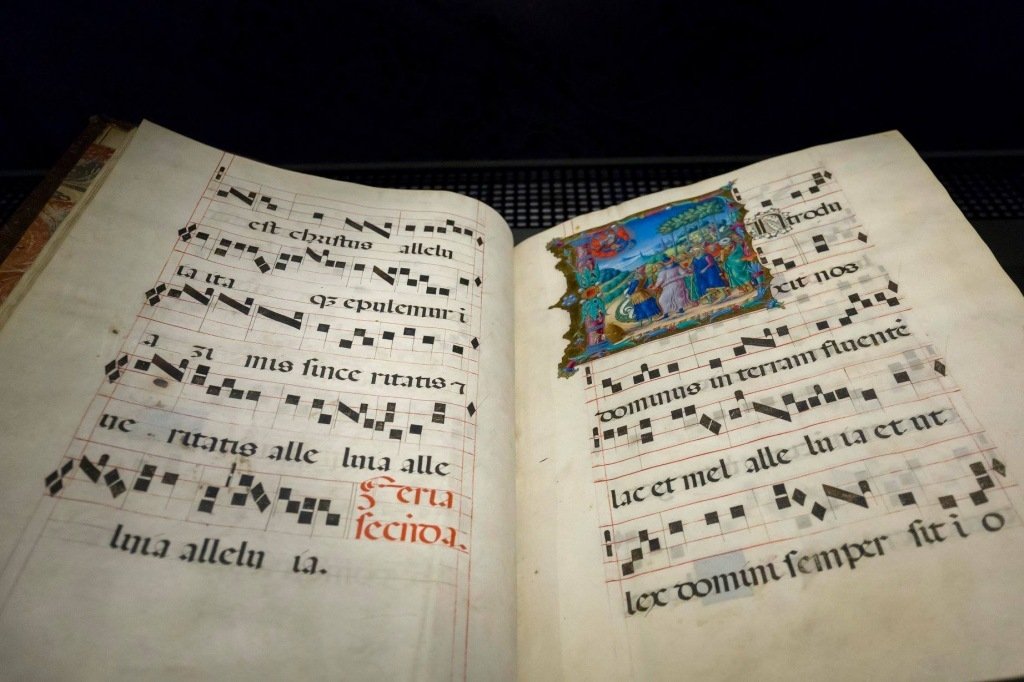 est christus allelu
ia ita qȝ epulemur i
a zi mis since ritatis ⁊
ue ritatis alle luia alle
luia allelu ia.
Feria
secūda.
INtrodu
xit nos
dominus in terram fluentē
lac et mel alle lu ia et ut
lex domini semper sit i o